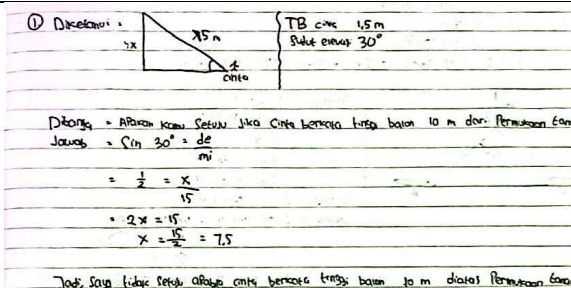 ① Diketahui :
x 15 m
cinta
TB cinta 1,5 m
Sudut elevasi 30°
Ditanya = Apakah kamu setuju jika Cinta berkata tinggi balon 10 m dari Permukaan tan
Jawab = Sin 30° = de/mi
= 1/2 = x/15
= 2x = 15
x = 15/2 = 7,5
Jadi, Saya tidak setuju apabila cinta berkata tinggi balon 10 m diatas Permukaan tana